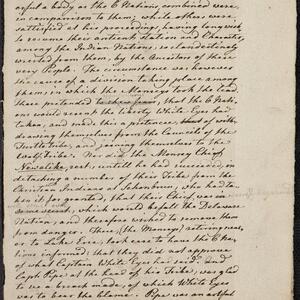 erful a body as the 6 Nations combined were,
in comparison to them; while others were
satisfied at his proceeding having long wish'd
to resume their antient station and Character
among the Indian Nations, so clandestinely
wrested from them, by the Ancestors of these
very People. The circumstance was however
the cause of a division taking place among
them; in which the Monseys took the lead
these pretended to their fears, that the 6 Nati-
ons would resent the liberty White Eyes had
taken, and made this a pretence, of with-
drawing themselves from the Councils of the
Turtle tribe; and joining themselves to the
Wolf tribe. Nor did the Monsey Chief,
Newalike, rest, until he had succeeded, in
detaching a number of their Tribe from the
Christian Indians at Schonbrun, who had ta-
ken it for granted, that this Chief, was in
some secret, which would hurt the Delaware
Nation; and therefore wished to remove them
from danger. These (the Monseys) retiring near,
or to Lake Erie, took care to have the 6 Na-
tions informed; that they did not approve
of what Captain White Eyes had said: and
Captn Pipe at the head of his Tribe, was glad
to see a breach made, of which White Eyes
was to bear the blame. Pipe was an artful